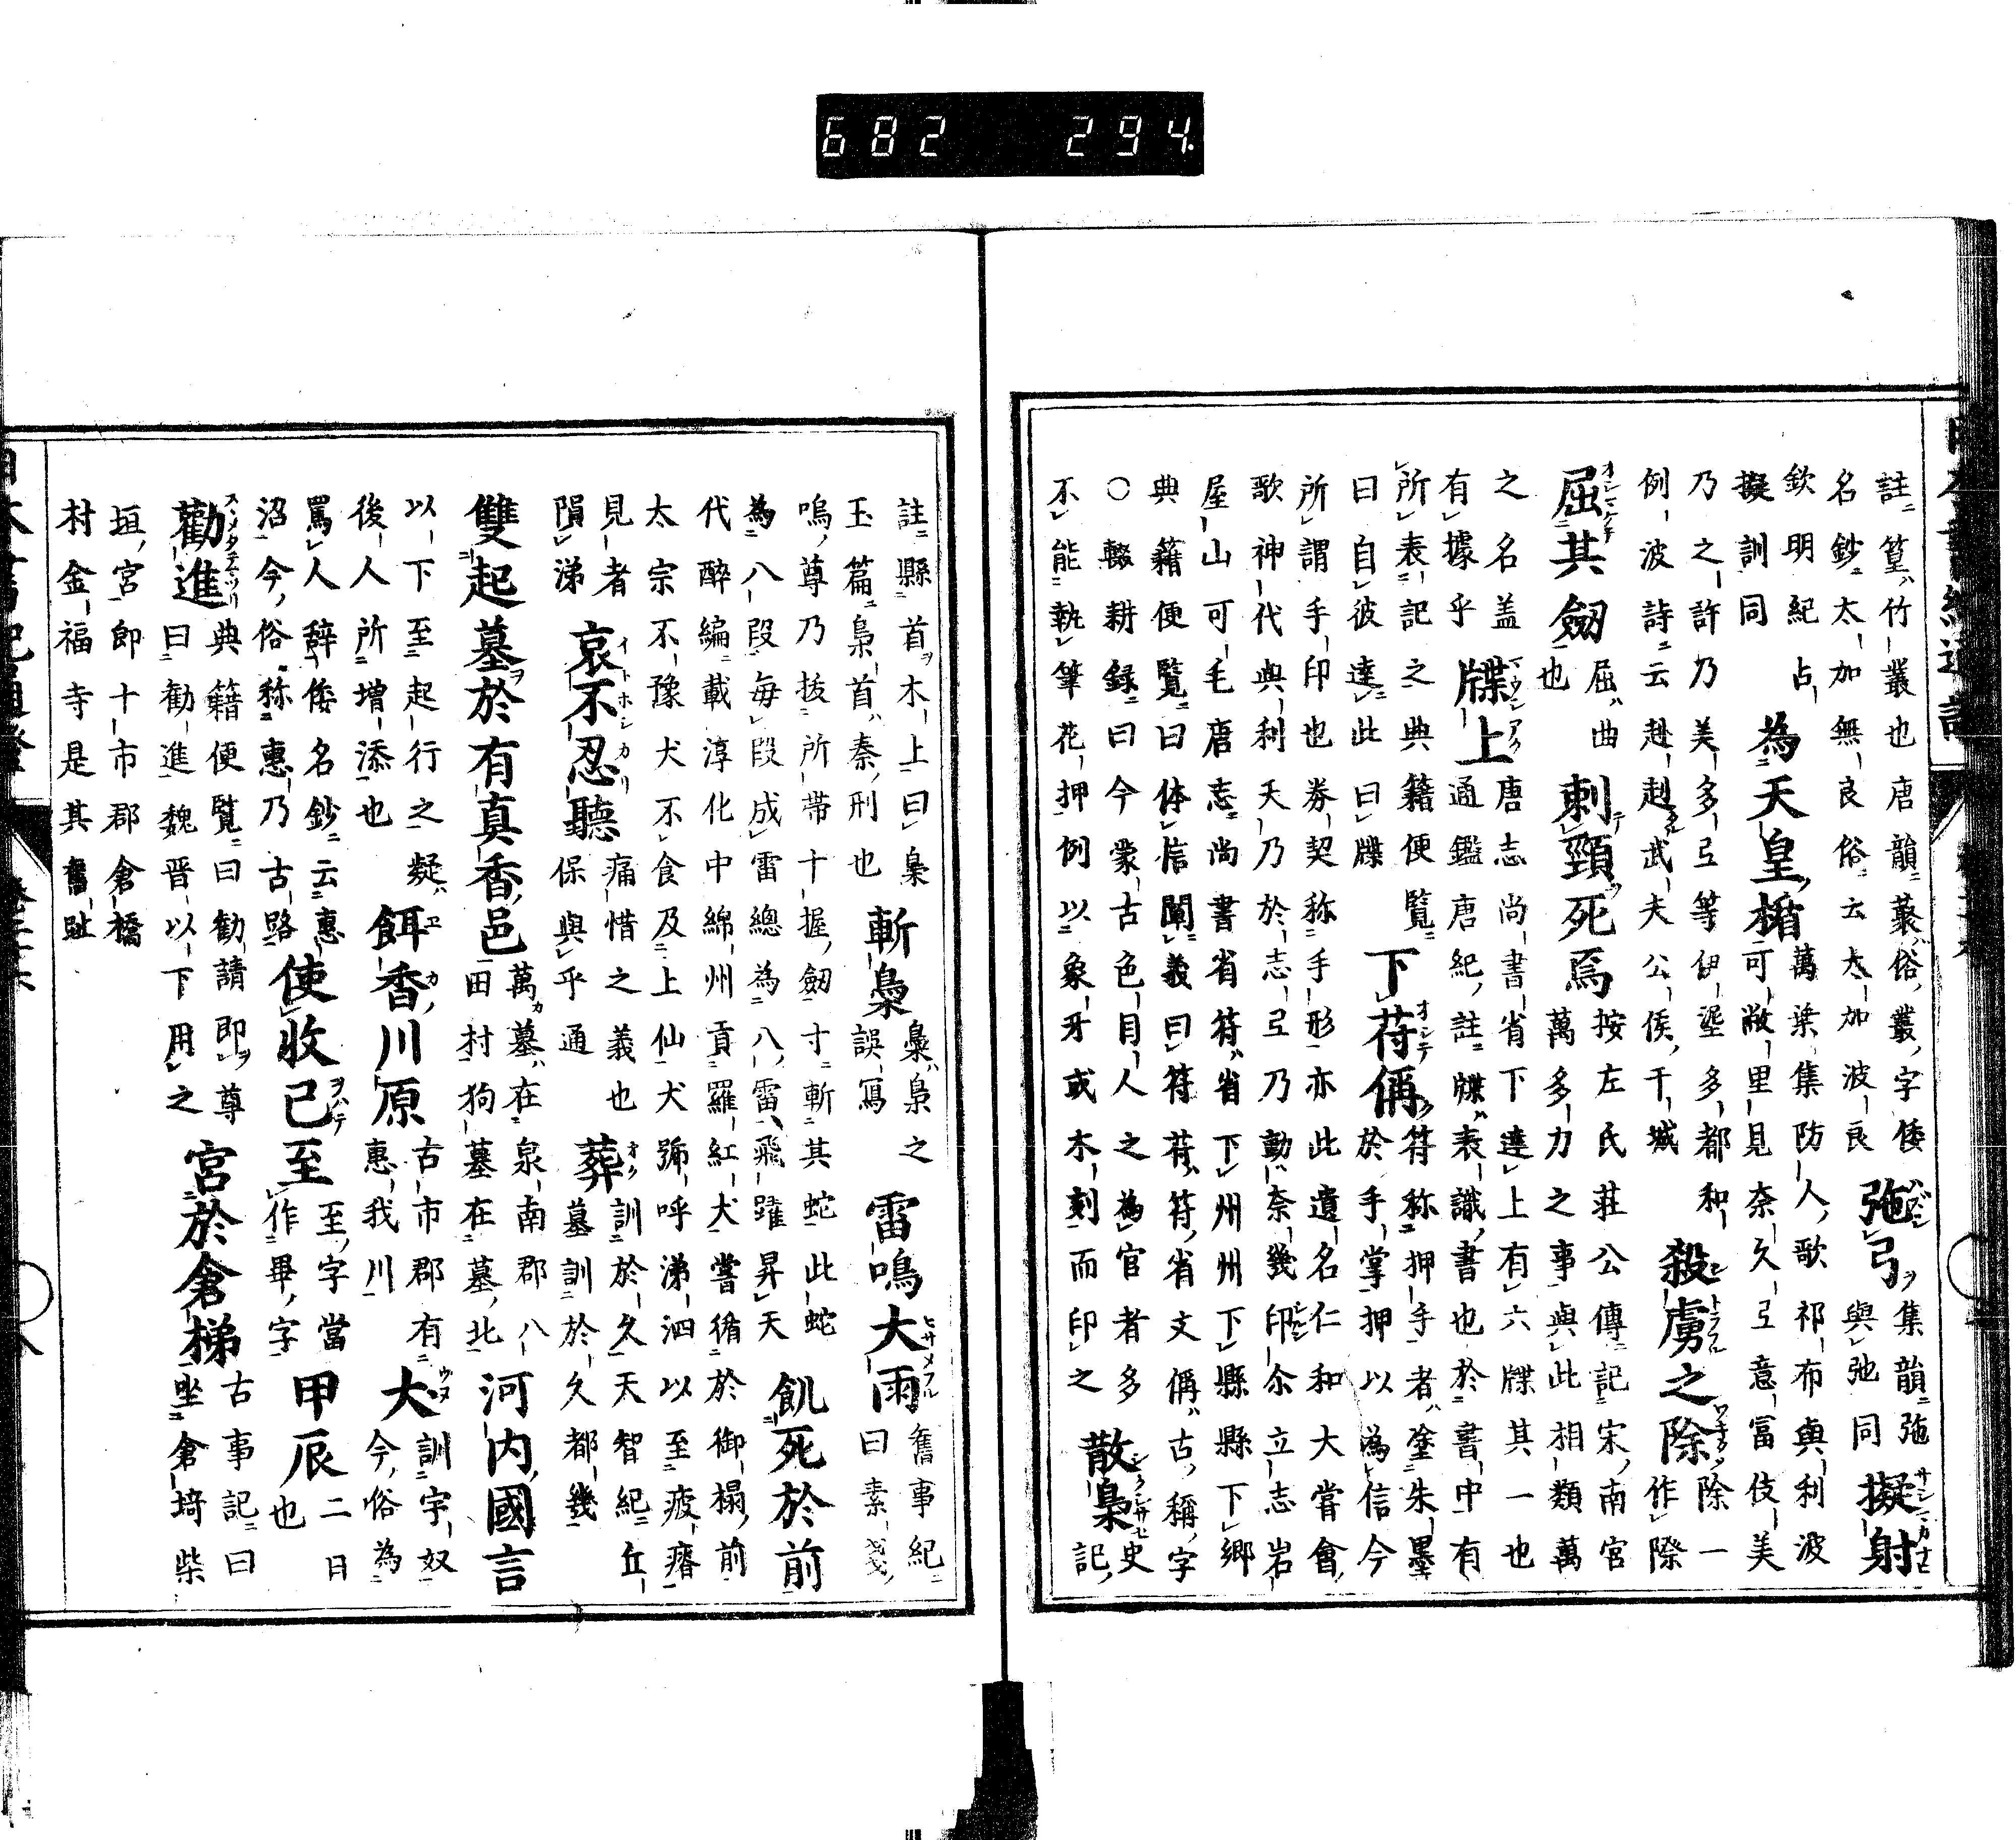 註篁竹叢也唐韻藂俗叢字倭
名鈔太加無良俗云大加波良
弛弓
集韻弛
與弛同
擬射
欽明紀占
擬訓同
為天皇楯
萬葉集防人歌祁布與利波
可敝里見奈久弖意富伎美
乃之許乃美多弖等伊埿多都和
例波詩云赳赳武夫公侯干城
殺虜之除
除一
作際
屈其劒
屈曲
也
刺頸死焉
按左氏莊公傳記宋南宮
萬多力之事與此相類萬
之名盖
有據乎
牒上
唐志尚書省下達上有六牒其一也
通鑑唐紀註牒表識書也於書中有
所表記之典籍便覧
曰自彼達此曰牒
下苻偁
符称押手者塗朱墨
於手掌押以為信今
所謂手印也券契称手形亦此遺名仁和大嘗會
歌神代與利天乃於志弖乃動奈幾印介立志岩
屋山可毛唐志尚書省符省下州州下縣縣下郷
典籍便覧曰体信闡義曰符苻符省文偁古稱字
○輟耕録曰今蒙古色目人之為官者多
不能執筆花押例以象牙或木刻而印之
散梟
史
記
註縣首木上曰梟
玉篇梟首秦刑也
斬梟
梟梟之
誤寫
雷鳴大雨
舊事紀
曰素戔
嗚尊乃抜所帯十握劒寸斬其蛇此蛇
為八段毎段成雷總為八雷飛躍昇天
飢死於前
代醉編載淳化中綿州貢羅紅犬嘗循於御榻前
太宗不豫犬不食及上仙犬號呼涕泗以至疲瘠
見者
隕涕
哀不忍聽
痛惜之義也
保與乎通
葬
訓於久天智紀丘
墓訓於久都幾
雙起墓於有真香邑
萬墓在泉南郡八
田村狗墓在墓北
河内國言
以下至起行之凝
後人所増添也
餌香川原
古市郡有
惠我川
犬
訓宇奴
今俗為
罵人辞倭名鈔云惠
沼今俗称惠乃古路
使收已至
至字當
作畢字
甲辰
二日
也
勸進
典籍便覧曰勧請即尊
曰勧進魏晋以下用之
宮於倉梯
古事記曰
坐倉埼柴
垣宮即十市郡倉橋
村金福寺是其舊趾
682 294